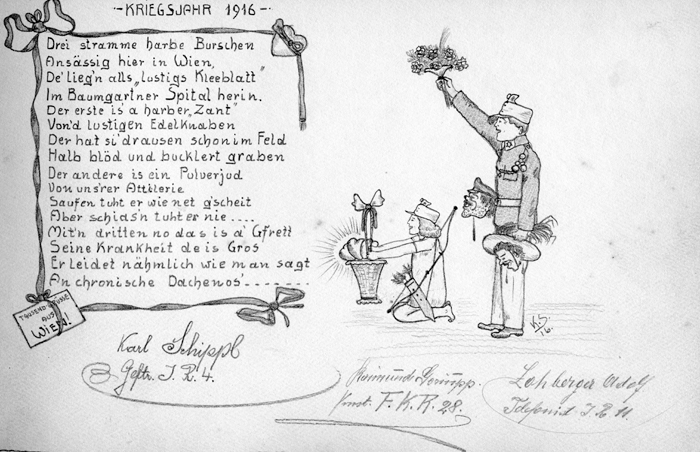 -KRIEGSJAHR 1916-
Drei stramme harbe Burschen
Ansässig hier in Wien,
De' lieg'n alls „lustigs Kleeblatt"
Im Baumgartner Spital herin.
Der erste is' a harber „Zant"
Von'd lustigen Edelknaben
Der hat si' drausen schon im Feld
Halb blöd und bucklert graben
Der andere is ein Pulverjud
Von uns'rer Attilerie
Saufen tuht er wie net g'scheit
Aber schias'n tuht er nie ....
Mit'n dritten no das is a' G'frett
Seine Krankheit de is Gros
Er leidet nähmlich wie man sagt
An chronische Dachenos'
AUS
WIEN!
K.S.
16.
Karl Schippl
Gftr. I. R. 4.
Raimund
F. K. R. 28.
Lohberger Adolf
I. R. 11.